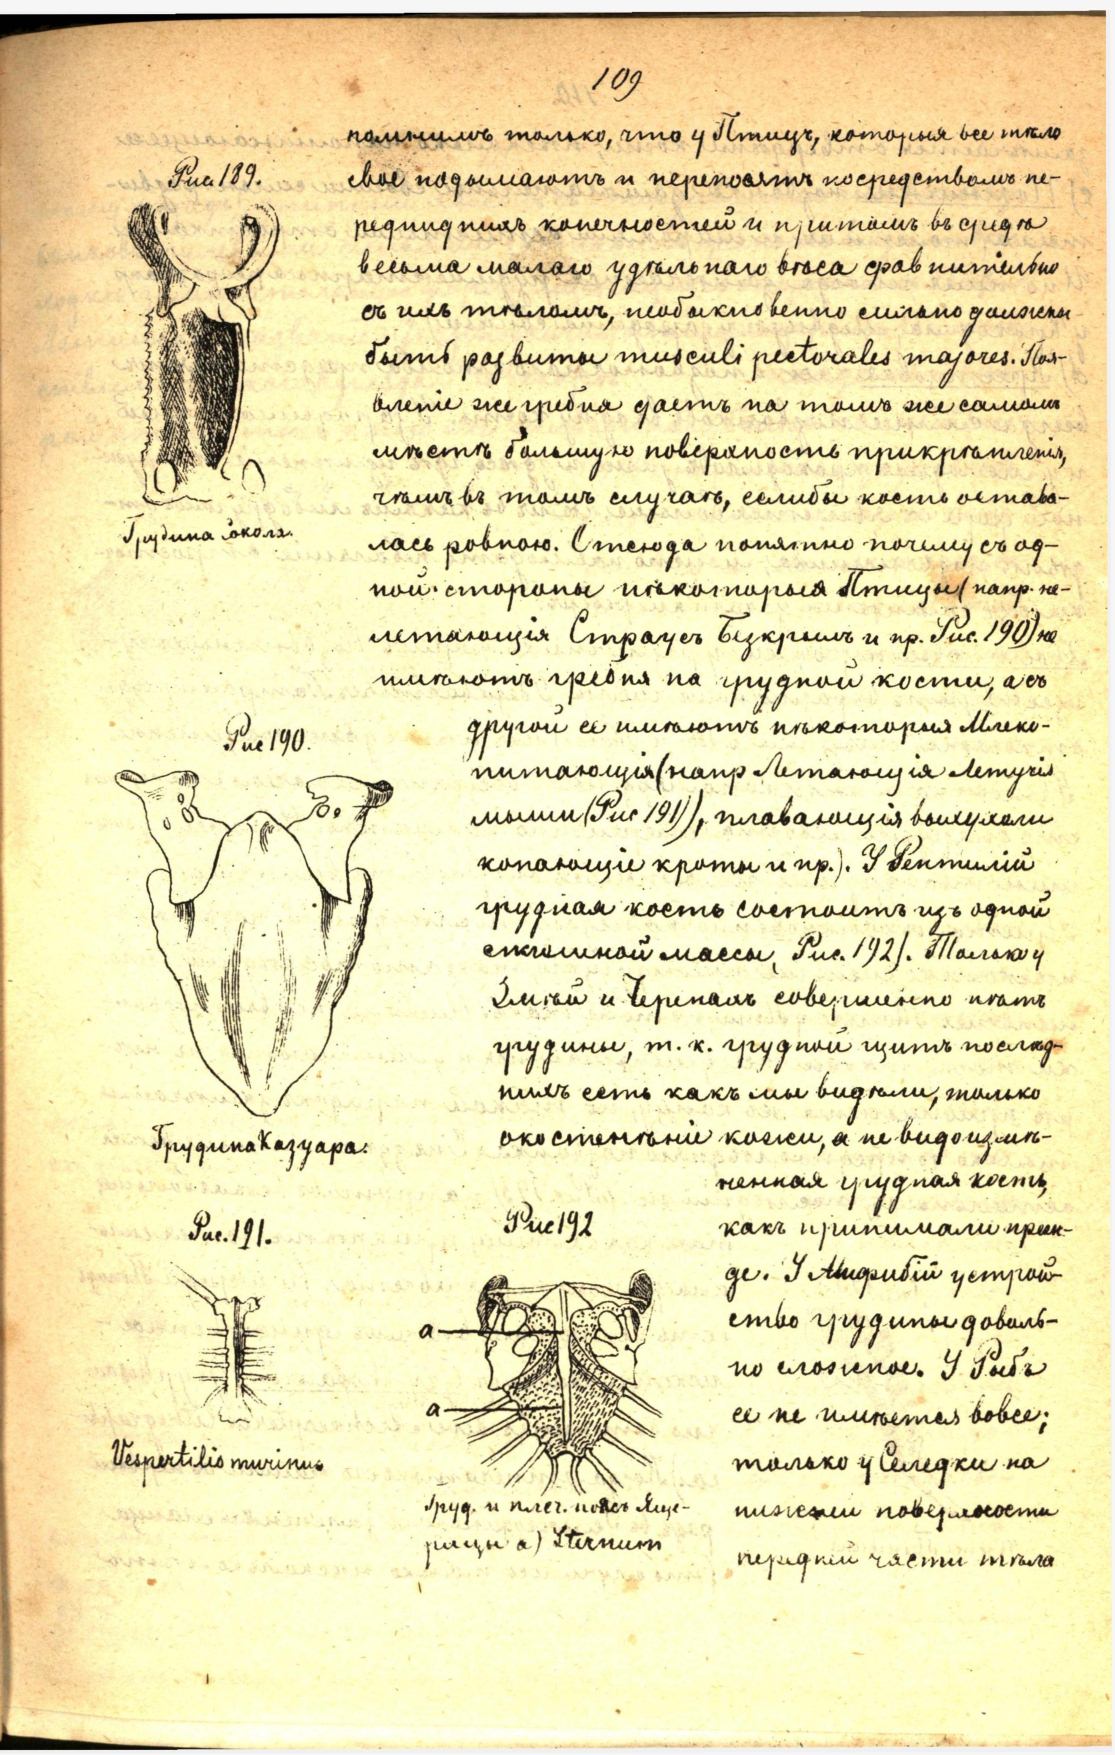 109
помнимъ только, что у Птицъ, которыя все тѣло
Рис 189.
свое подымаютъ и переносятъ посредствомъ пе-
реднихъ конечностей и притомъ въ средѣ
весьма малаго удѣльнаго вѣса сравнительно
съ ихъ тѣломъ, необыкновенно сильно должны
быть развиты musculi pectorales majores. Поя-
вленіе же гребня даетъ на томъ же самомъ
мѣстѣ большую поверхность прикрѣпленія,
чѣмъ въ томъ случаѣ, еслибы кость остава-
Грудина сокола.
лась ровною. Отсюда понятно почему съ од-
ной стороны нѣкоторыя Птицы (напр. не-
летающія Страусъ Безкрылъ и пр. Рис. 190) не
имѣютъ гребня на грудной кости, а съ
другой ее имѣютъ нѣкоторыя Млеко-
Рис 190.
питающія (напр Летающія Летучія
мыши (Рис 191)), плавающія выхухоли
копающіе кроты и пр.). У Рептилій
грудная кость состоитъ изъ одной
сплошной массы, Рис. 192). Только у
Змѣй и Черепахъ совершенно нѣтъ
грудины, т. к. грудной щитъ послѣд-
нихъ есть какъ мы видѣли, только
окостенѣніе кожи, а не видоизмѣ-
Грудина Казуара.
ненная грудная кость,
Рис. 191.
Рис 192
какъ принимали преж-
де. У Амфибій устрой-
ство грудины доволь-
но сложное. У Рыбъ
ее не имѣется вовсе;
только у Селедки на
нижней поверхности
передней части тѣла
a
a
Vespertilio murinus
Груд. и плеч. поясъ Яще-
рицы а) Sternum